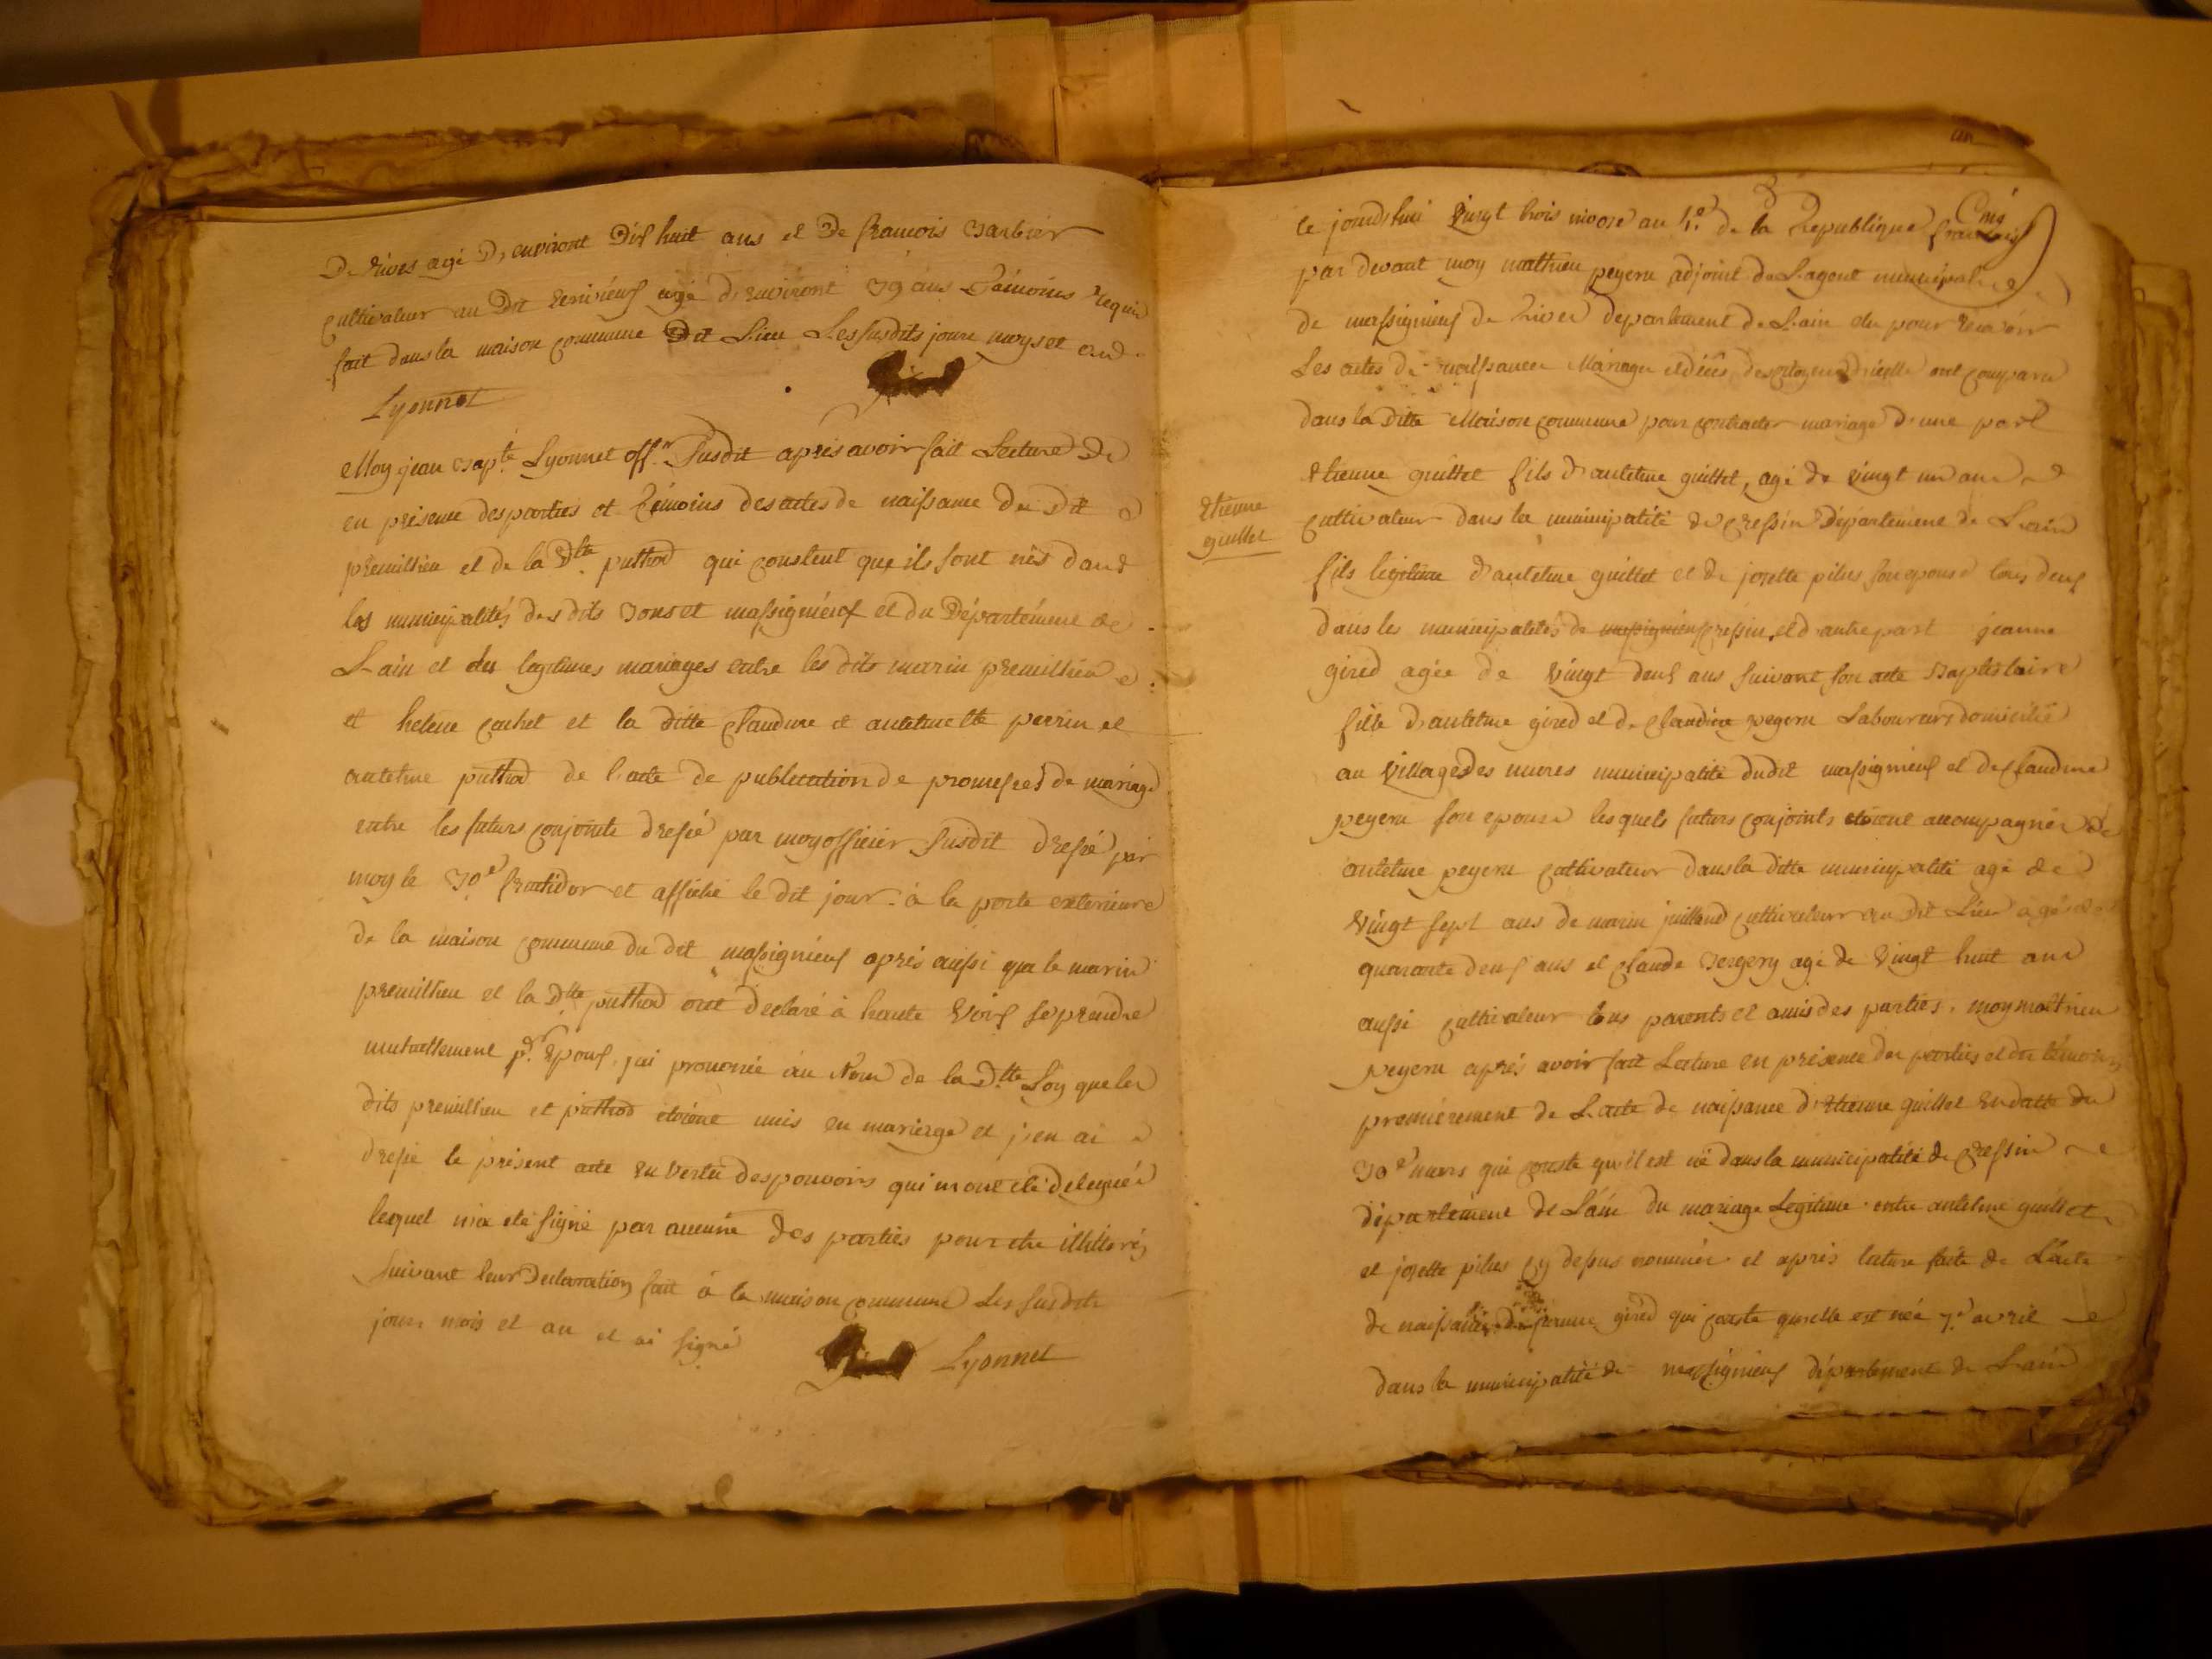 De Rives agé D'environt Dix huit ans et De francois Barbier
cultivateur au Dit agé d'environt 39 ans Témoins requis
fait dans la maison commune Dit Lieu Les susdits jour moys et an
Lyonnet
Moy jean Bapte Lyonnet offr Susdit après avoir fait Lecture De
en présence des parties et Témoins des actes de naissance Du Dit
premillieu et de la Dte puthod qui constent que ils sont nés dans
les municipalités des dits Bons et massignieux et du Département de
L'ain et des legitimes mariages entre les dits marin premillieu
et helene cochet et la ditte Claudine et antelmette perrin et
antelme puthod de l'acte de publication de promesses de mariage
entre les futurs conjoints dressé par moy officier Susdit dressé par
moy le 30e fructidor et affiché le dit jour à la porte exterieure
de la maison commune du dit massignieux après aussi que le marin
premillieu et la Dtte puthod ont declaré à haute Voix se prendre
mutuellement pr Epoux, jai prononcé au Nom de la Dtte Loy que les
dits premillieu et puthod étoient unis en mariage et j'en ai
dressé le présent acte en vertu des pouvoirs qui mont été delegués
lequel n'a été signé par aucune des parties pour etre illitterés
suivant leur declaration fait à la maison commune Les susdits
jour mois et an et ai signé
Lyonnet
le jourdhui Vingt trois nivose an 4e de la Republique francoise
par devant moy mathieu peyern adjoint de L'agent municipal
de massignieux de Rives departement de L'ain elu pour recevoir
Les actes de naissance Mariage et décès des citoyens d'icelle ont comparu
dans la ditte Maison commune pour contracter mariage d'une part
etienne guillet fils d'antelme guillet, agé de vingt un ans
Etienne
guillet
cultivateur dans la municipalité de cressin Département de L'ain
fils legitime d'antelme guillet et de josette pilus son epouse tous deux
dans les municipalités de massignieux cressin, et d'autre part jeanne
gired agée de Vingt deux ans suivant son acte Baptistaire
fille d'antelme gired et de claudine peyern Laboureurs domicilié
au Village des mures municipalité dudit massignieux et de claudine
peyern son epouse lesquels futurs conjoints étoient accompagnés de
antelme peyern cultivateur dans la ditte municipalité agé de
Vingt sept ans de marin juilland cultivateur au dit Lieu agé de
quarante deux ans et claude Bergery agé de Vingt huit ans
aussi cultivateur tous parents et amis des parties. moy mathieu
peyern après avoir fait Lecture en présence des parties et des témoins
premièrement de L'acte de naissance d'Etienne guillet en datte du
30e mars qui conste qu'il est né dans la municipalité de cressin
département de L'ain du mariage Legitime entre antelme guillet
et josette pilus cy dessus nommés et après lecture faite de L'acte
de naissance de jeanne gired qui conste qu'elle est née 7e avril
dans la municipalité de massignieux département de L'ain